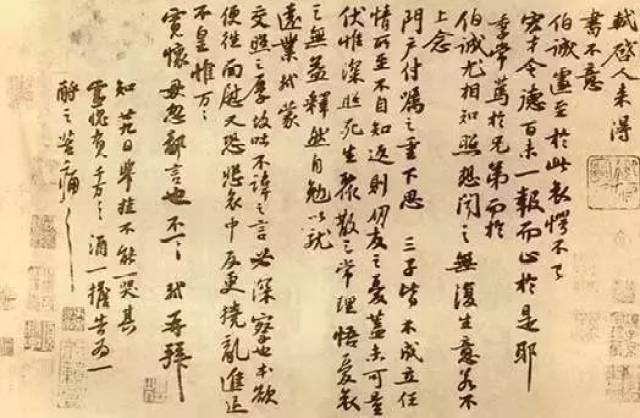 軾啓人來得
書不意
伯誠遽至於此哀愕不已
宏才令德百未一報而止於是耶
季常篤於兄弟而於
伯誠尤相知照想聞之無復生意若不
上念
門户付囑之重下思三子皆不成立任
情所至不自知返則朋友之憂蓋未可量
伏惟深照死生聚散之常理悟憂哀
之無益釋然自勉以就
遠業軾蒙
交照之厚故吐不諱之言必深察也本欲
便往面慰又恐悲哀中反更撓亂進退
不皇惟万々
寬懷毋忽鄙言也不一々軾再拜
知廿九日舉挂不能一哭其
靈愧負千万々酒一擔告為一
酹之苦痛々々